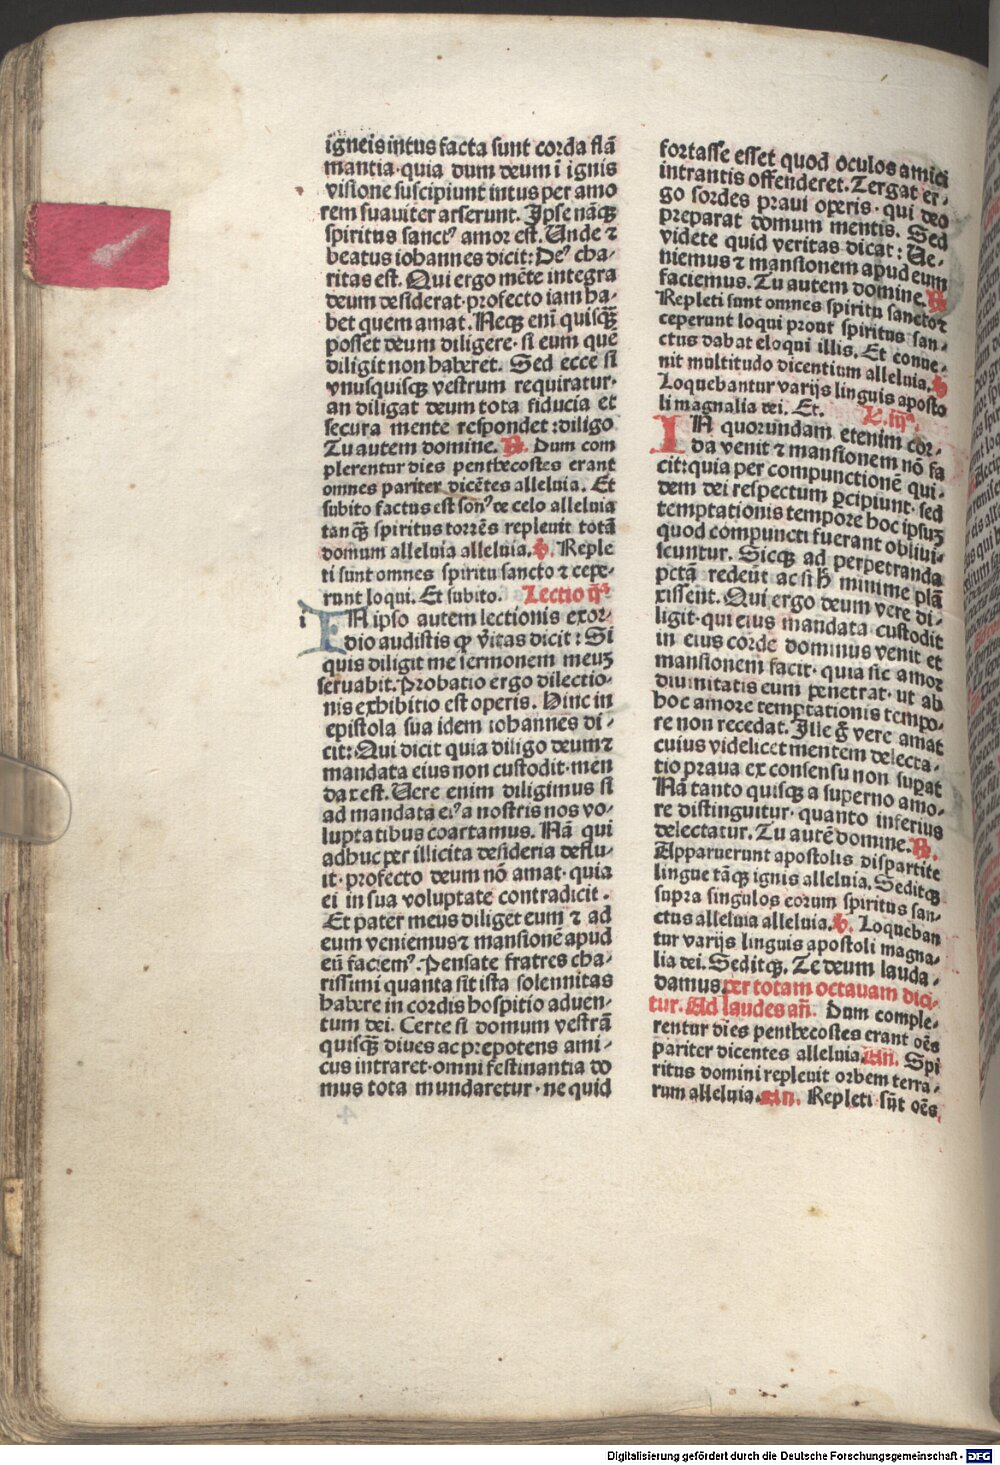 igneis intus facta sunt corda flã
mantia·quia dum deum ĩ ignis
visione suscipiunt intus per amo
rem suauiter arserunt. Ipse nãqꝫ
spiritus sanctꝰ amor est. Unde ⁊
beatus iohannes dicit: Deꝰ cha⸗
ritas est. Qui ergo mẽte integra
deum desiderat·profecto iam ha⸗
bet quem amat. Neqꝫ eni quisqꝫ̃
posset deum diligere·si eum quẽ
diligit non haberet. Sed ecce si
vnusquisqꝫ vestrum requiratur·
an diligat deum tota fiducia et
secura mente respondet:diligo
Tu autem domine. ℟. Dum com
plerentur dies penthecostes erant
omnes pariter dicẽtes alleluia. Et
subito factus est sonꝰ de celo alleluia
tanqꝫ̃ spiritus torrẽs repleuit totã
domum alleluia alleluia. ℣. Reple
ti sunt omnes spiritu sancto ⁊ cepe⸗
runt loqui. Et subito. Lectio ijª
i
IN ipso autem lectionis exor⸗
dio audistis ꝙ v̾itas dicit: Si
quis diligit me sermonem meuꝫ
seruabit. Probatio ergo dilectio⸗
nis exhibitio est operis. Hinc in
epistola sua idem iohannes di⸗
cit: Qui dicit quia diligo deum ⁊
mandata eius non custodit·men
dax est. Uere enim diligimus si
ad mandata eiꝰ a nostris nos vo⸗
luptatibus coartamus. Nã qui
adhuc per illicita desideria deflu⸗
it·profecto deum nõ amat·quia
ei in sua voluptate contradicit.
Et pater meus diliget eum ⁊ ad
eum veniemus ⁊ mansionẽ apud
eũ faciemꝰ. Pensate fratres cha⸗
rissimi quanta sit ista solennitas
habere in cordis hospitio aduen⸗
tum dei. Certe si domum vestrã
quisqꝫ̃ diues ac prepotens ami⸗
cus intraret·omni festinantia do
mus tota mundaretur·ne quid
fortasse esset quod oculos amici
intrantis offenderet. Tergat er⸗
go sordes praui operis·qui deo
preparat domum mentis. Sed
videte quid veritas dicat: Ue⸗
niemus ⁊ mansionem apud eum
faciemus. Tu autem domine. ℟.
Repleti sunt omnes spiritu sancto ⁊
ceperunt loqui prout spiritus san⸗
ctus dabat eloqui illis. Et conue⸗
nit multitudo dicentium alleluia. ℣.
Loquebantur varijs linguis aposto
li magnalia dei. Et. L. iijª.
IN quorundam etenim cor⸗
da venit ⁊ mansionem nõ fa
cit:quia per compunctionẽ qui⸗
dem dei respectum ꝑcipiunt·sed
temptationis tempore hoc ipsuꝫ
quod compuncti fuerant obliui⸗
scuntur. Sicqꝫ ad perpetranda
pctã redeũt ac si h̃ minime plã
xissent. Qui ergo deum vere di⸗
ligit·qui eius mandata custodit
in eius corde dominus venit et
mansionem facit·quia sic amor
diuinitatis eum penetrat·ut ab
hoc amore temptationis tempo⸗
re non recedat. Ille g̃ vere amat
cuius videlicet mentem delecta⸗
tio praua ex consensu non suꝑat
Nã tanto quisqꝫ a superno amo⸗
re distinguitur·quanto inferius
delectatur. Tu autẽ domine. ℟.
Apparuerunt apostolis dispartite
lingue tãqꝫ ignis alleluia. Seditqꝫ
supra singulos eorum spiritus san⸗
ctus alleluia alleluia. ℣. Loqueban
tur varijs linguis apostoli magna⸗
lia dei. Seditqꝫ. Te deum lauda⸗
damus. per totam octauam dici⸗
tur. Ad laudes añ. Dum comple⸗
rentur dies penthecostes erant oẽs
pariter dicentes alleluia. Añ. Spi
ritus domini repleuit orbem terra⸗
rum alleluia. añ. Repleti sũt oẽs
Digitalisierung gefördert durch die Deutsche Forschungsgemeinschaft - DFG